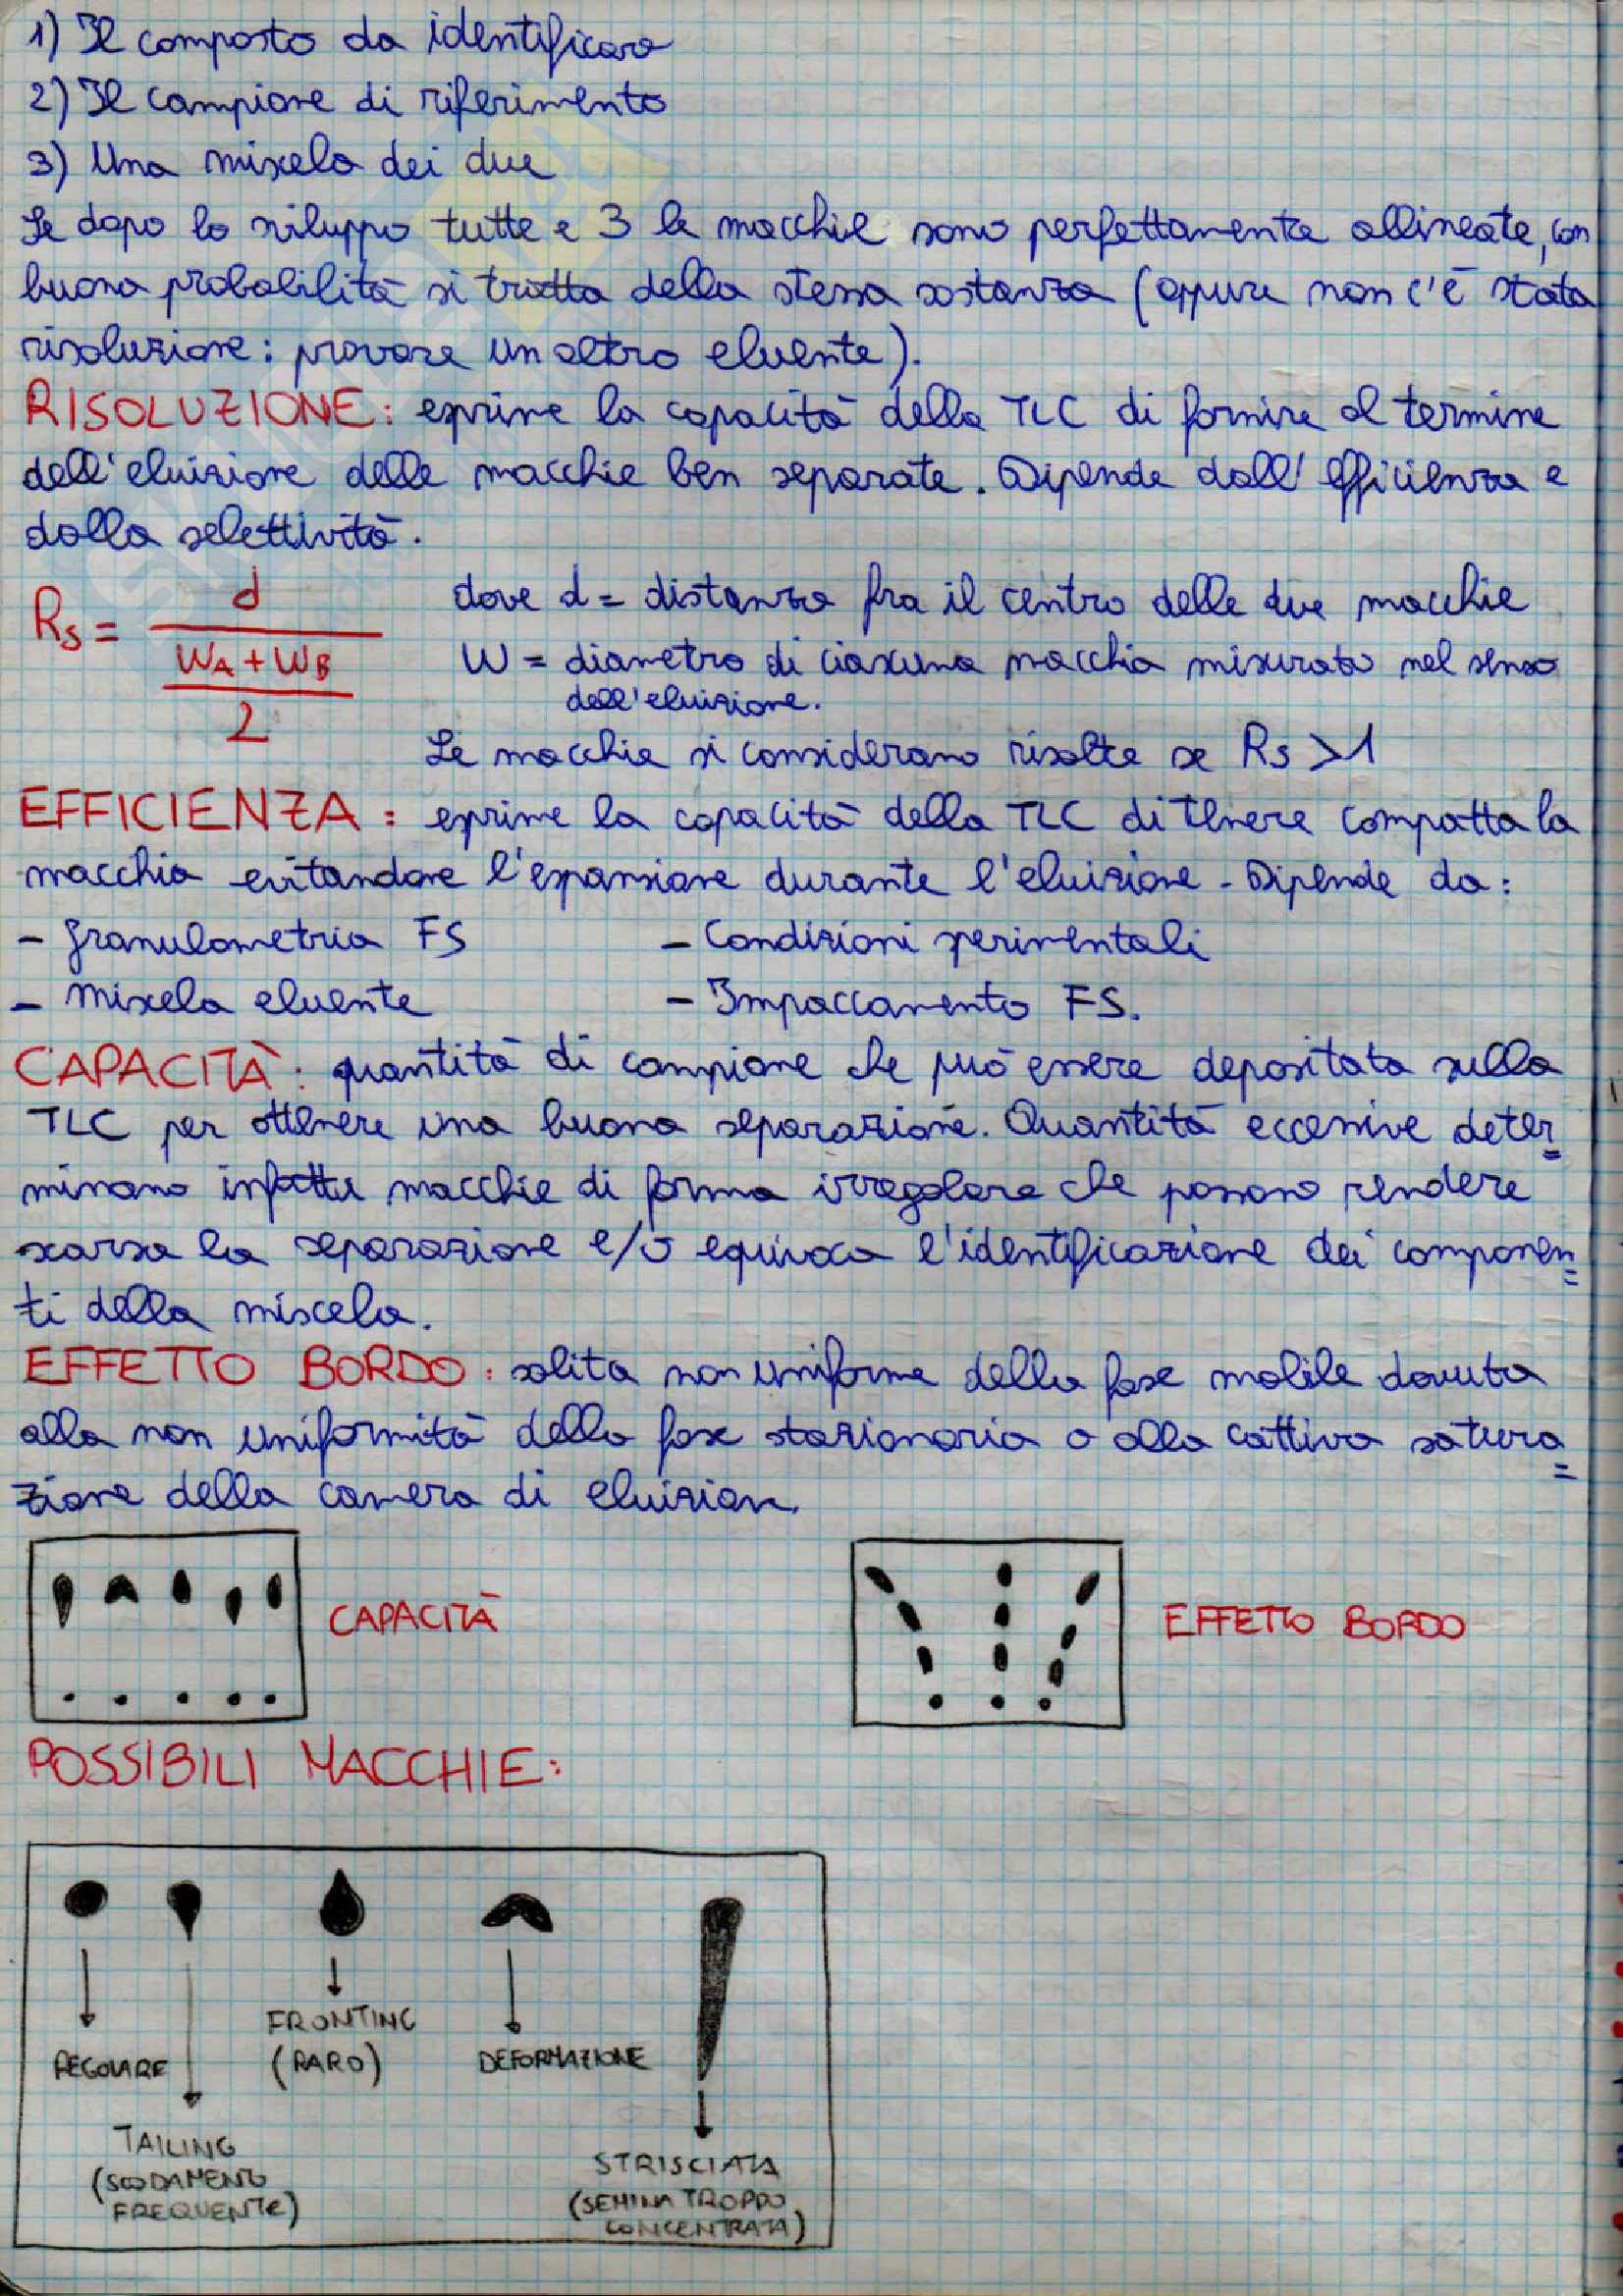 1) Il composto da identificare
2) Il campione di riferimento
3) Una miscela dei due
Se dopo lo sviluppo tutte e 3 le macchie sono perfettamente allineate, con
buona probabilità si tratta della stessa sostanza (oppure non c'è stata
risoluzione: provare un altro eluente).
RISOLUZIONE: esprime la capacità della TLC di fornire al termine
dell'eluizione delle macchie ben separate. Dipende dall'efficienza e
dalla selettività.
Rs = d / ((WA + WB) / 2)
dove d = distanza fra il centro delle due macchie
W = diametro di ciascuna macchia misurato nel senso
dell'eluizione.
Le macchie si considerano risolte se Rs > 1
EFFICIENZA: esprime la capacità della TLC di tenere compatta la
macchia evitandone l'espansione durante l'eluizione. Dipende da:
- Granulometria FS - Condizioni sperimentali
- Miscela eluente - Impaccamento FS.
CAPACITÀ: quantità di campione che può essere depositata sulla
TLC per ottenere una buona separazione. Quantità eccessive deter=
minano infatti macchie di forma irregolare che possono rendere
scarsa la separazione e/o equivoca l'identificazione dei componen=
ti della miscela.
EFFETTO BORDO: salita non uniforme della fase mobile dovuta
alla non uniformità della fase stazionaria o alla cattiva satura=
zione della camera di eluizion.
CAPACITÀ
EFFETTO BORDO
POSSIBILI MACCHIE:
REGOLARE
TAILING
(SCODAMENTO
FREQUENTE)
FRONTING
(RARO)
DEFORMAZIONE
STRISCIATA
(SEMINA TROPPO
CONCENTRATA)